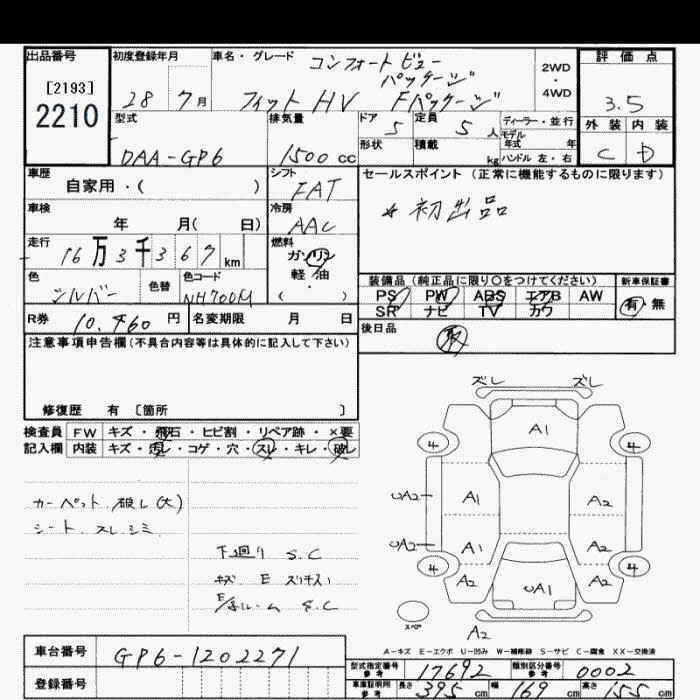 出品番号
[2193]
2210
初度登録年月
28 7月
車名・グレード
コンフォートビュー
パッケージ
フィットHV Fパッケージ
2WD
・
4WD
評価点
3.5
外装 内装
C D
型式
DAA-GP6
排気量
1500cc
ドア
5
定員
5人
ディーラー・並行
モデル
年式 年
形状
積載
kg
ハンドル 左・右
車歴
自家用・( )
シフト
FAT
セールスポイント(正常に機能するものに限ります)
* 初出品
車検
年 月( 日)
冷房
AAC
走行
16万3千367km
燃料
ガソリン
軽・油
・
( )
色
シルバー
色替
色コード
NH700M
装備品(純正品に限り○をつけてください)
新車保証書
PS PW ABS エアB AW
SR ナビ TV カワ
有・無
R券 10,460円
名変期限 月 日
後日品
取
注意事項申告欄(不具合内容等は具体的に記入して下さい)
修復歴 有 〔箇所 〕
検査員
記入欄
FW キズ・飛石・ヒビ割・リペア跡・×要
内装 キズ・汚レ・コゲ・穴・スレ・キレ・破レ
カーペット破レ(大)
シート スレシミ
下廻り S.C
キズ E ズリキズ
S.C
ズレ ズレ
A1
4 4
UA2 A1 A2
UA2 A1 A2
4 4
A2 UA1 A2
スペア
A2
A-キズ E-エクボ U-凹み W-補修跡 S-サビ C-腐食 XX-交換済
車台番号
GP6-1202271
登録番号
型式指定番号
参考
17692
類別区分番号
参考
0002
車庫証明用
参考
長さ 395cm
幅 169cm
高さ 155cm